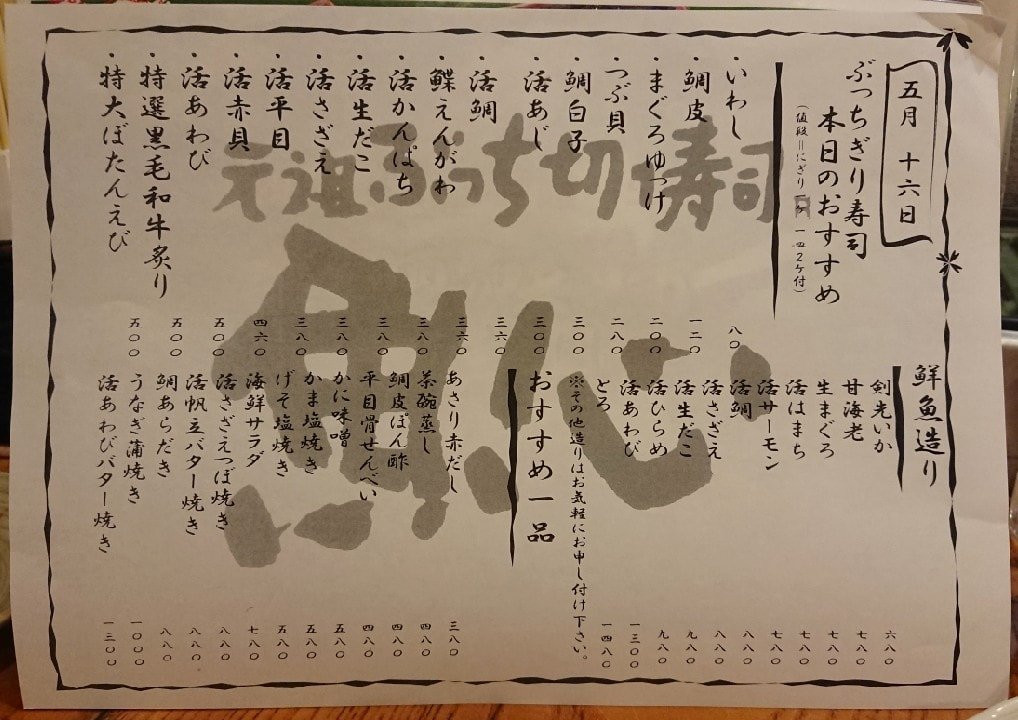 五月 十六日
ぶっちぎり寿司
本日のおすすめ
・いわし 八〇
・鯛皮 一二〇
・まぐろゆっけ 二〇〇
・つぶ貝 二八〇
・鯛白子 三〇〇
・活あじ 三〇〇
・活鯛 三六〇
・鰈えんがわ 三六〇
・活かんぱち 三八〇
・活生だこ 三八〇
・活さざえ 三八〇
・活平目 三八〇
・活赤貝 四六〇
・活あわび 五〇〇
・特選黒毛和牛炙り 五〇〇
・特大ぼたんえび 五〇〇
鮮魚造り
剣光いか 六八〇
甘海老 七八〇
生まぐろ 七八〇
活はまち 七八〇
活サーモン 七八〇
活鯛 八八〇
活さざえ 八八〇
活生だこ 九八〇
活ひらめ 九八〇
活あわび 一三〇〇
とろ 一四八〇
※その他造りはお気軽にお申し付け下さい。
おすすめ一品
あさり赤だし 三八〇
茶碗蒸し 四八〇
鯛皮ぽん酢 四八〇
平目骨せんべい 四八〇
かに味噌 五八〇
かま塩焼き 五八〇
げそ塩焼き 五八〇
海鮮サラダ 七八〇
活さざえつぼ焼き 八八〇
活帆立バター焼き 八八〇
鯛あらだき 八八〇
うなぎ蒲焼き 一〇〇〇
活あわびバター焼き 一三〇〇
元祖ぶっち切り寿司
魚心